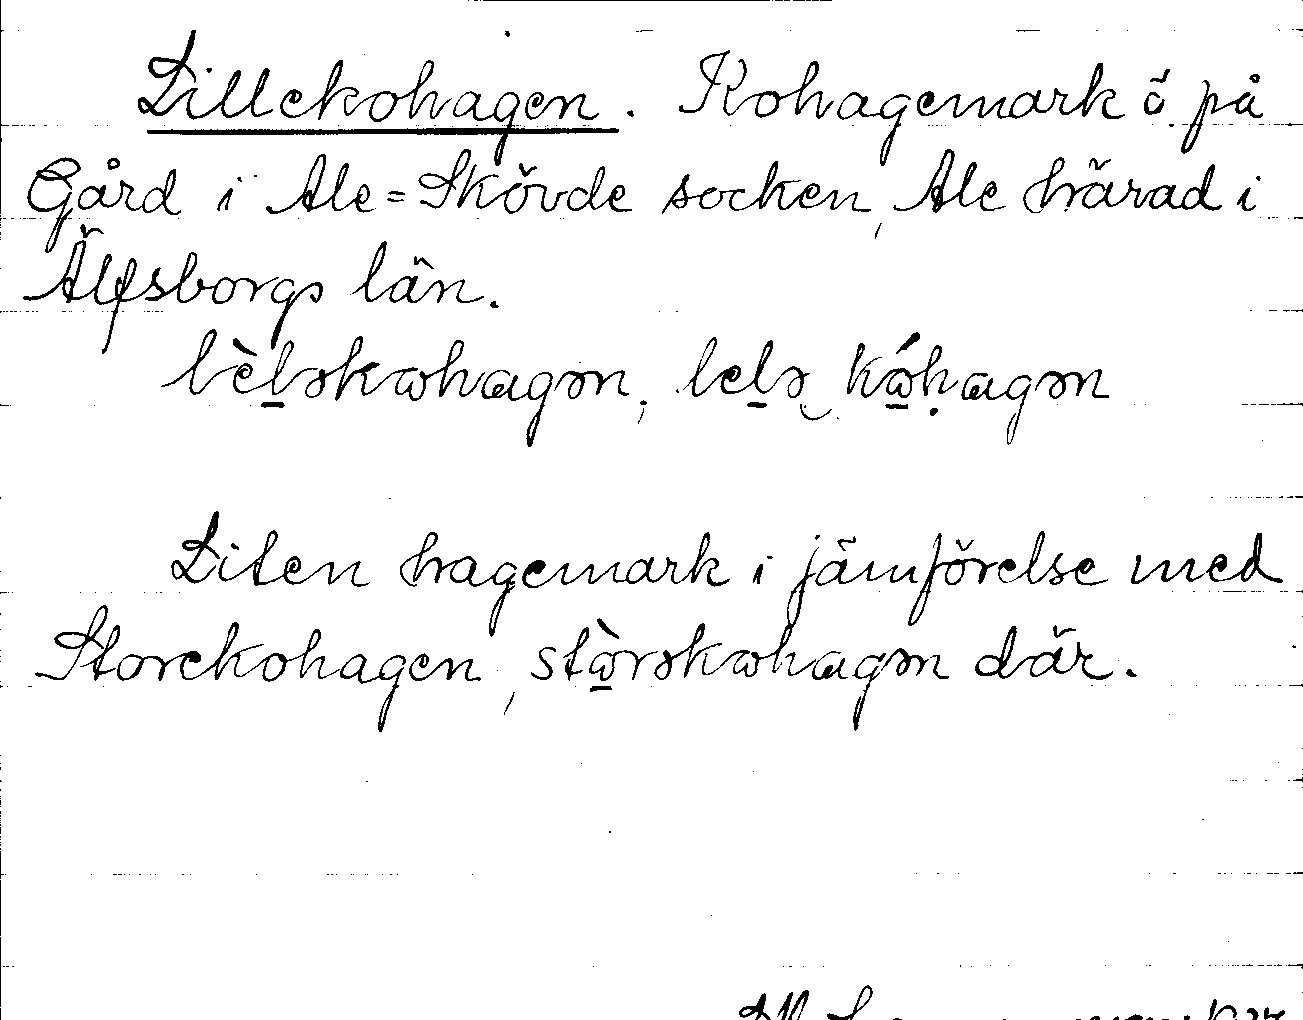 Lillekohagen. Kohagemark ö. på
Gård i Ale=Skövde socken, Ale härad i
Älfsborgs län.
lèləkωhagən, lelə kώhagən
Liten hagemark i jämförelse med
Storekohagen, stὼrəkωhagən där.